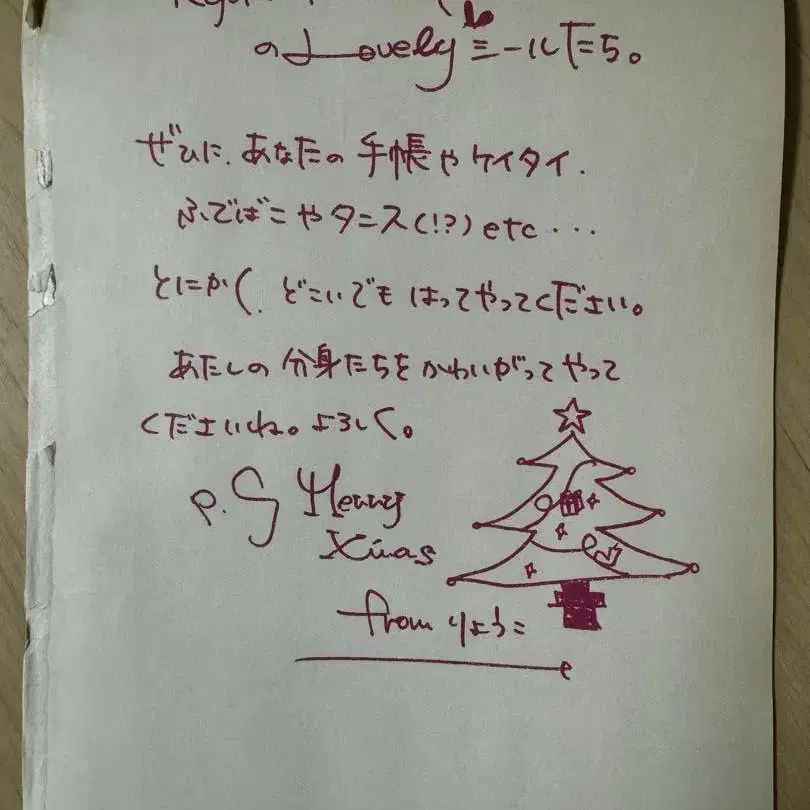 のLovelyシールたち。
ぜひに、あなたの手帳やケイタイ、
ふでばこやタンス(!?)etc・・・
とにかく、どこいでもはってやってください。
あたしの分身たちをかわいがってやって
くださいね。よろしく。
P.S Merry
Xmas
from りょうこ